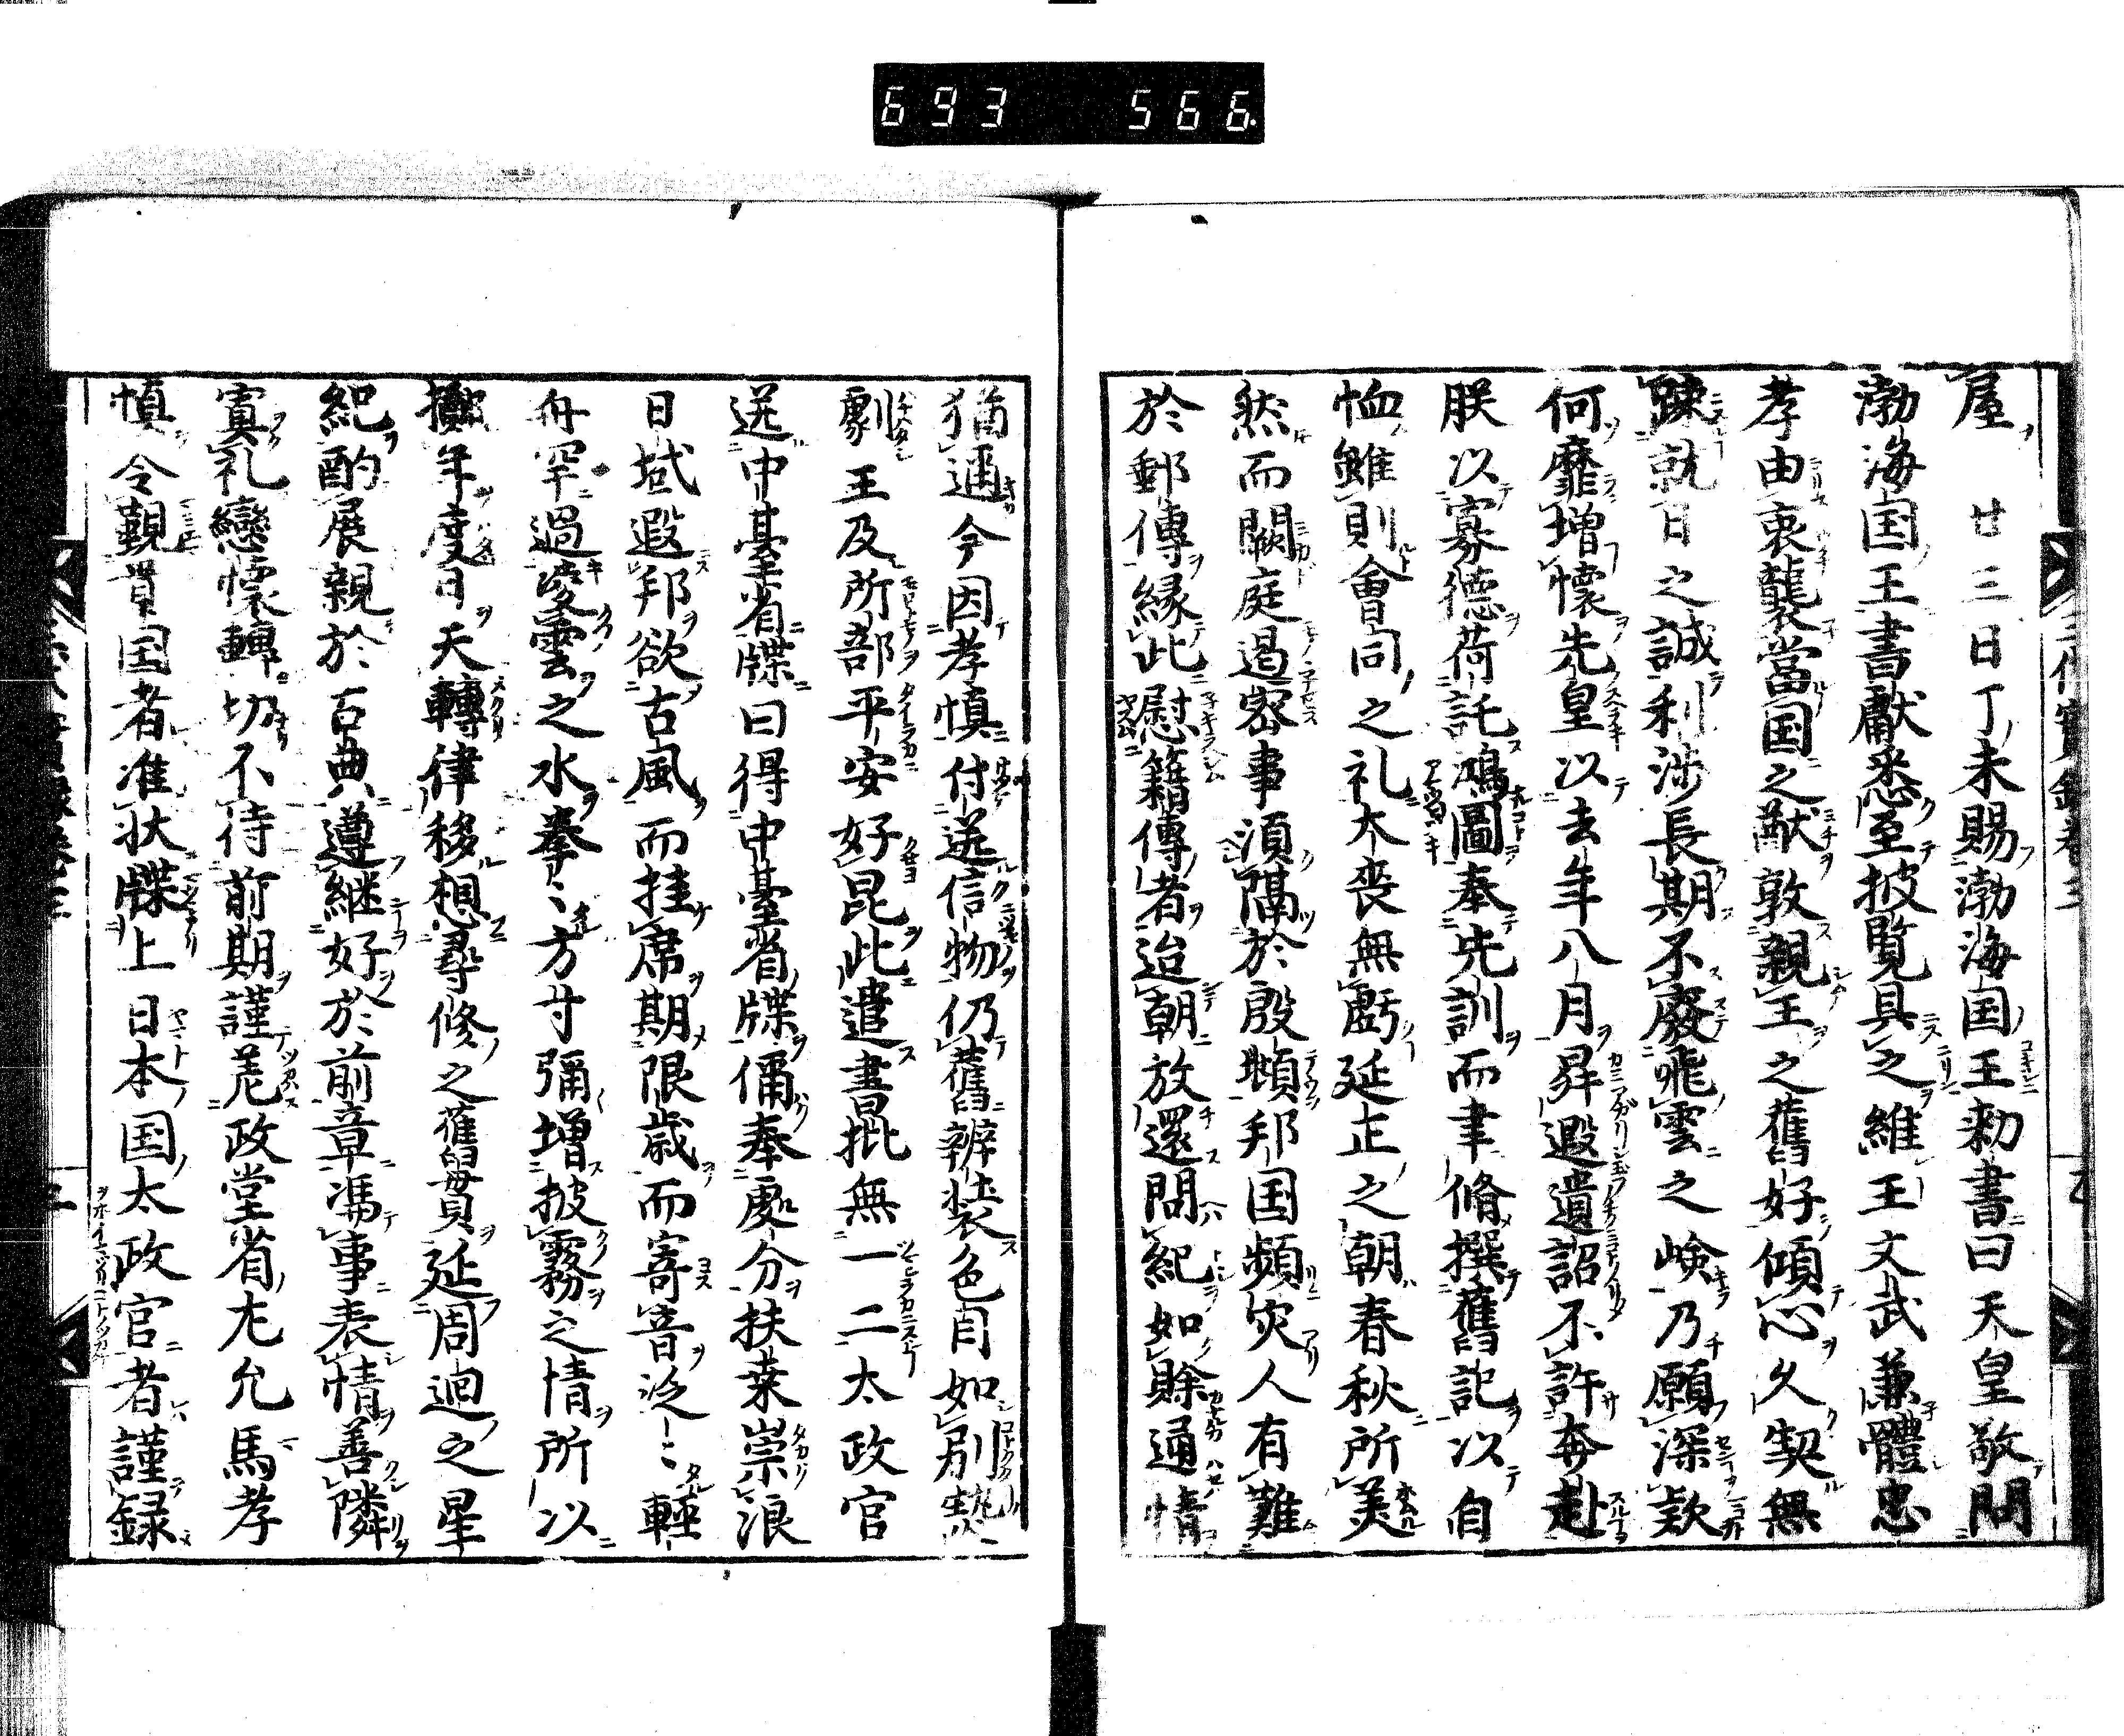 693 566
屋 廿三日丁未賜渤海国王勅書曰天皇敬問
渤海国王書獻悉至披覧具之維王文武兼體忠
孝由衷襲當国之猷敦親王之舊好傾心久契無
踈就日之誠利渉長期不廢飛雲之嶮乃願深欵
何靡増懐先皇以去年八月昇遐遺詔不許奔赴
朕以寡德荷託鴻圖奉先訓而聿脩撰舊記以自
恤雖則會同之礼大喪無虧延正之朝春秋所美
然而闕庭遏密事須隔於殷頫邦国頻灾人有難
於郵傳縁此慰籍傳者迨朝放還問紀如賖通情
猶邇今因孝慎付送信物仍舊辨装色目如別熱
劇王及所部平安好昆此遣書批無一二太政官
送中臺省牒曰得中臺省牒偁奉處分扶桒崇浪
日域遐邦欲古風而挂席期限歳而寄音泛〻輕
舟罕過凌雲之水拳〻方寸彌増披霧之情所以
年度日天轉律移想尋修之舊貫延周廻之星
紀酌展親於古典遵継好於前章馮事表情善隣
寔礼戀懐轉切不待前期謹差政堂省左允馬孝
慎令覲貴国者准状牒上日本国太政官者謹録